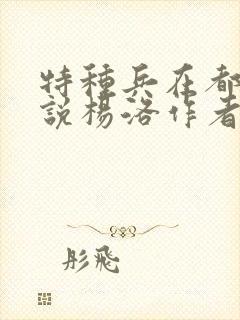 特種兵在都
說楊洛作者
彤飛